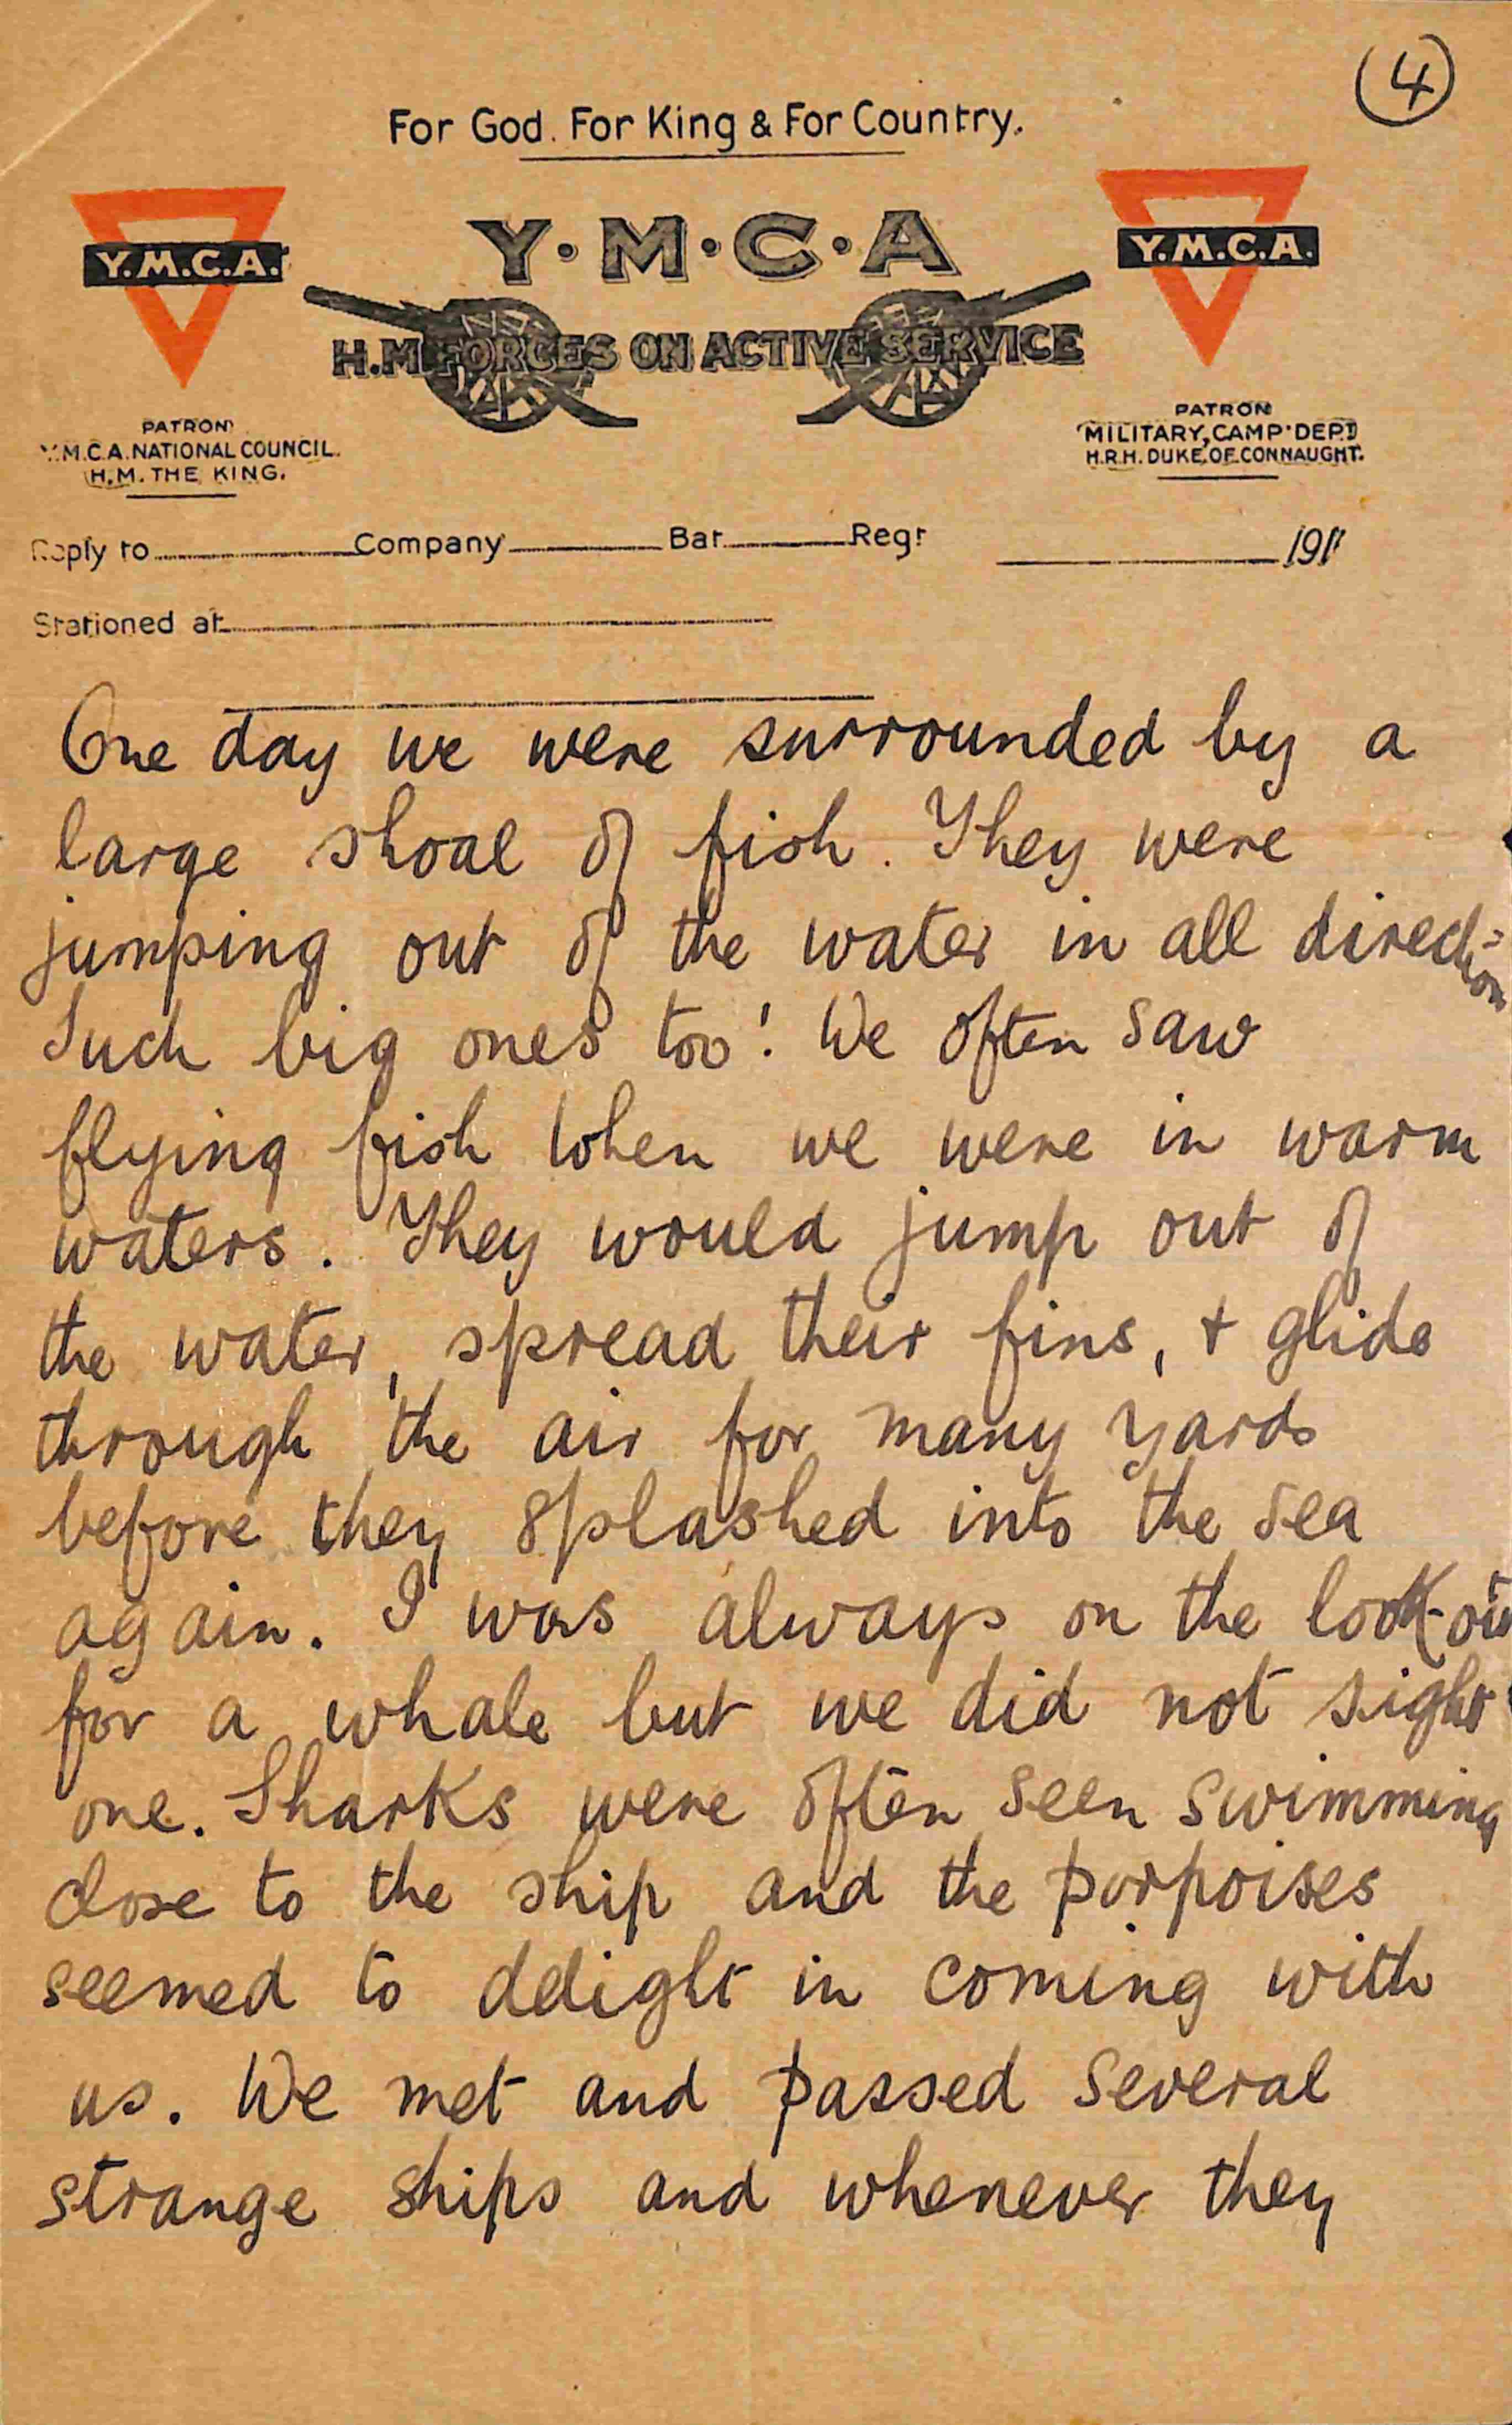 (4)
For God. For King & For Country.
Y·M·C·A
Y.M.C.A.
Y.M.C.A.
H.M FORCES ON ACTIVE SERVICE
PATRON
Y.M.C.A. NATIONAL COUNCIL.
H.M. THE KING.
PATRON
MILITARY, CAMP DEPT
H.R.H. DUKE OF CONNAUGHT.
Reply to Company Bat. Regt 191
Stationed at
One day we were surrounded by a
large shoal of fish. They were
jumping out of the water in all direct=ion
Such big ones too! We often saw
flying fish when we were in warm
waters. They would jump out of
the water, spread their fins, + glide
through the air for many yards
before they splashed into the sea
again. I was always on the look-out
for a whale but we did not sight
one. Sharks were often seen swimming
close to the ship and the porpoises
seemed to delight in coming with
us. We met and passed several
strange ships and whenever they